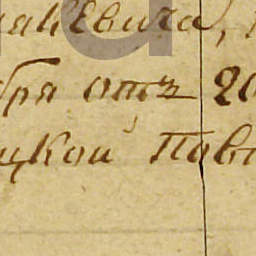 макевича,
бря отъ 20
цкой Пов